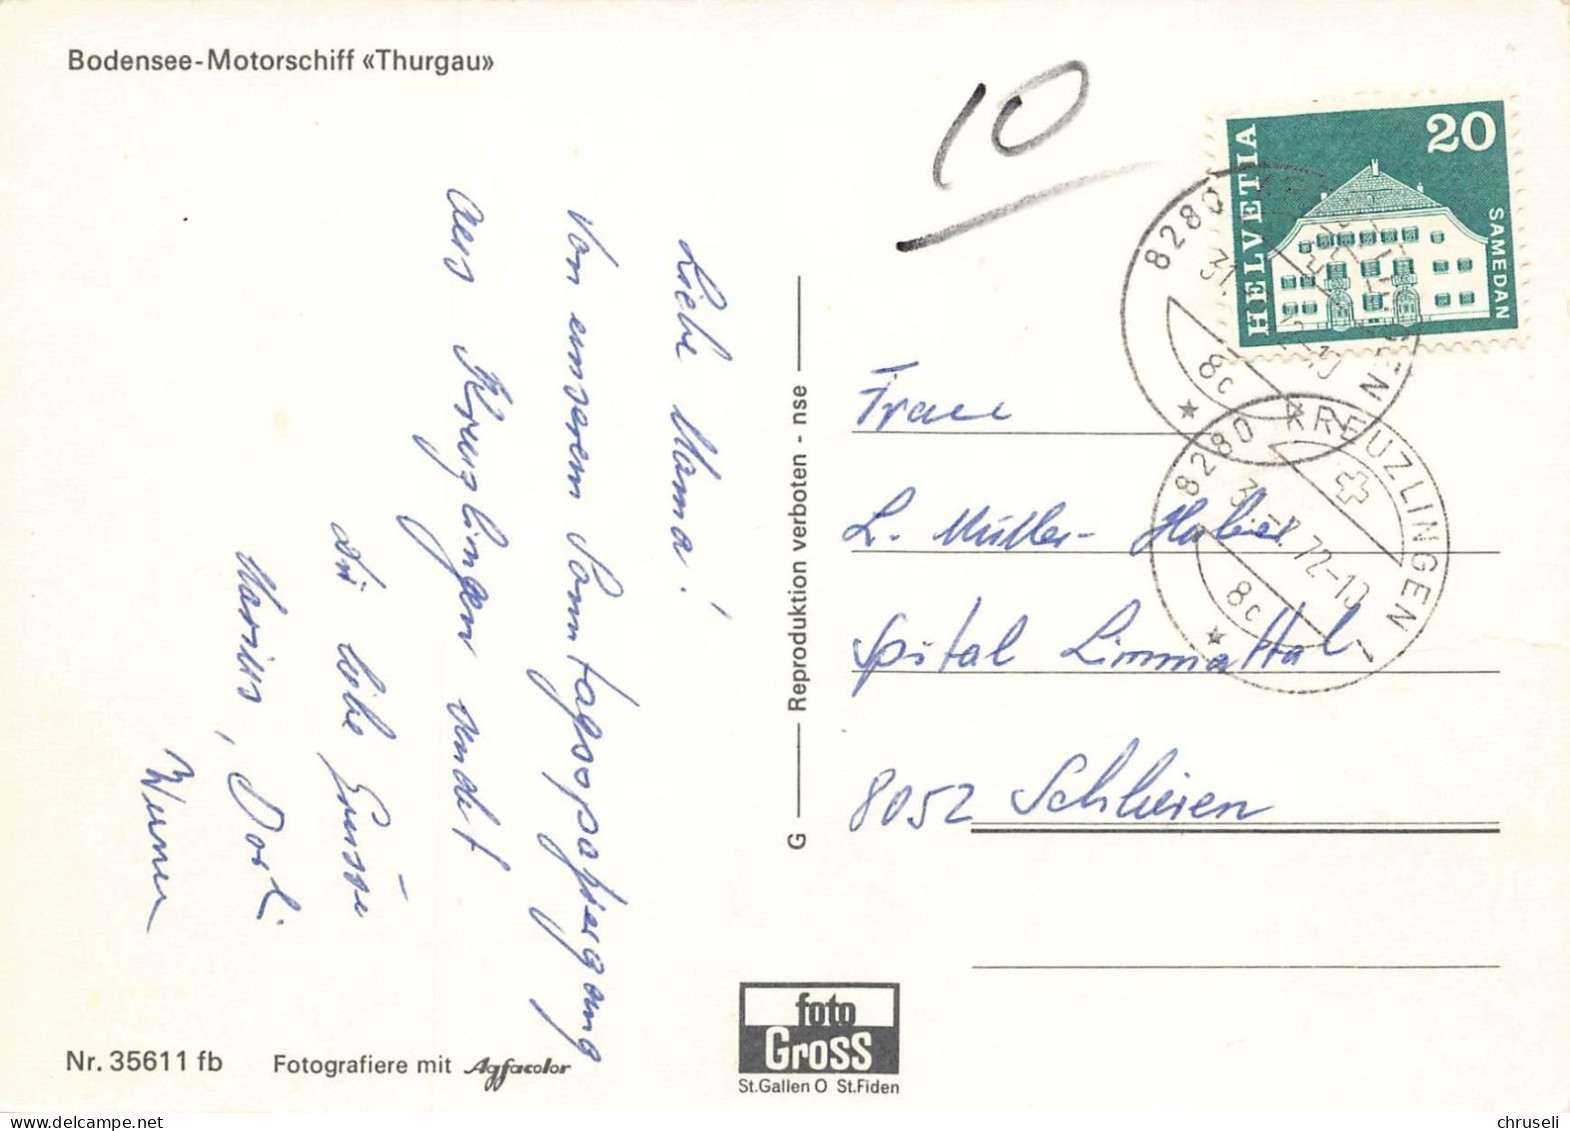 Bodensee-Motorschiff «Thurgau»
Liebe Mama!
Von unserem Sonntagsspaziergang
aus Kreuzlingen sendet
Dir liebe Grüsse
Marius, Dorli
Werner
10
HELVETIA
20
SAMEDAN
8280 KREUZLINGEN 1
72-10
8c
8280 KREUZLINGEN 1
31.-1.72-10
8c
Frau
L. Müller-Huber
Spital Limmattal
8052 Schlieren
G Reproduktion verboten - nse
foto
Gross
St.Gallen O St.Fiden
Nr. 35611 fb Fotografiere mit Agfacolor
chruseli